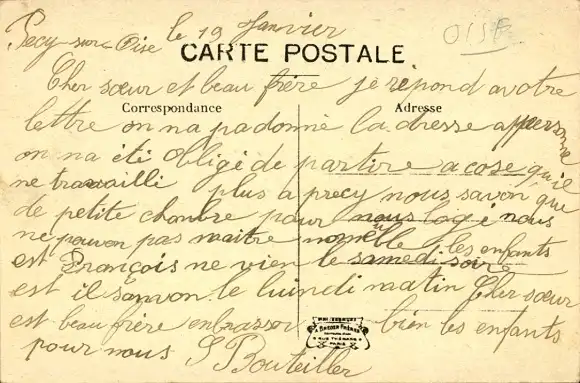 Precy-sur-Oise le 19 Janvier
OISE
CARTE POSTALE
Cher sœur et beau frère je répond a votre
Correspondance Adresse
lettre on na pa donné la dresse a personne
on na été obligé de partire a cose qu'il
ne travailli plus a precy nous savon que
de petite chanbre pour nous logé nous
ne pouvon pas maitre les enfants
est François ne vien le samedi soire
est il sanvon le luindi matin Cher sœur
est beau frère enbrasser bien les enfants
pour nous S Bouteiller
PARIS